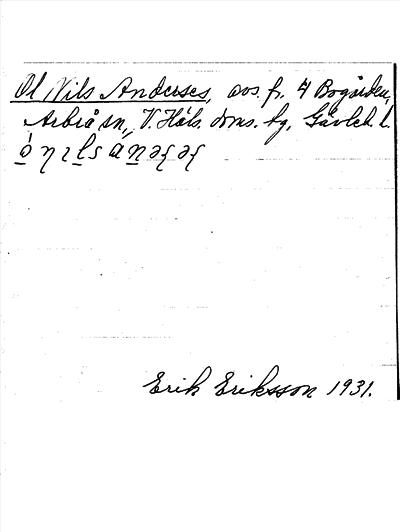 Ol Nils Anderses, avs. fr. 4 Bogården,
Arbrå sn, V. Häls. doms. hg, Gävleb. l.
Erik Eriksson 1931.